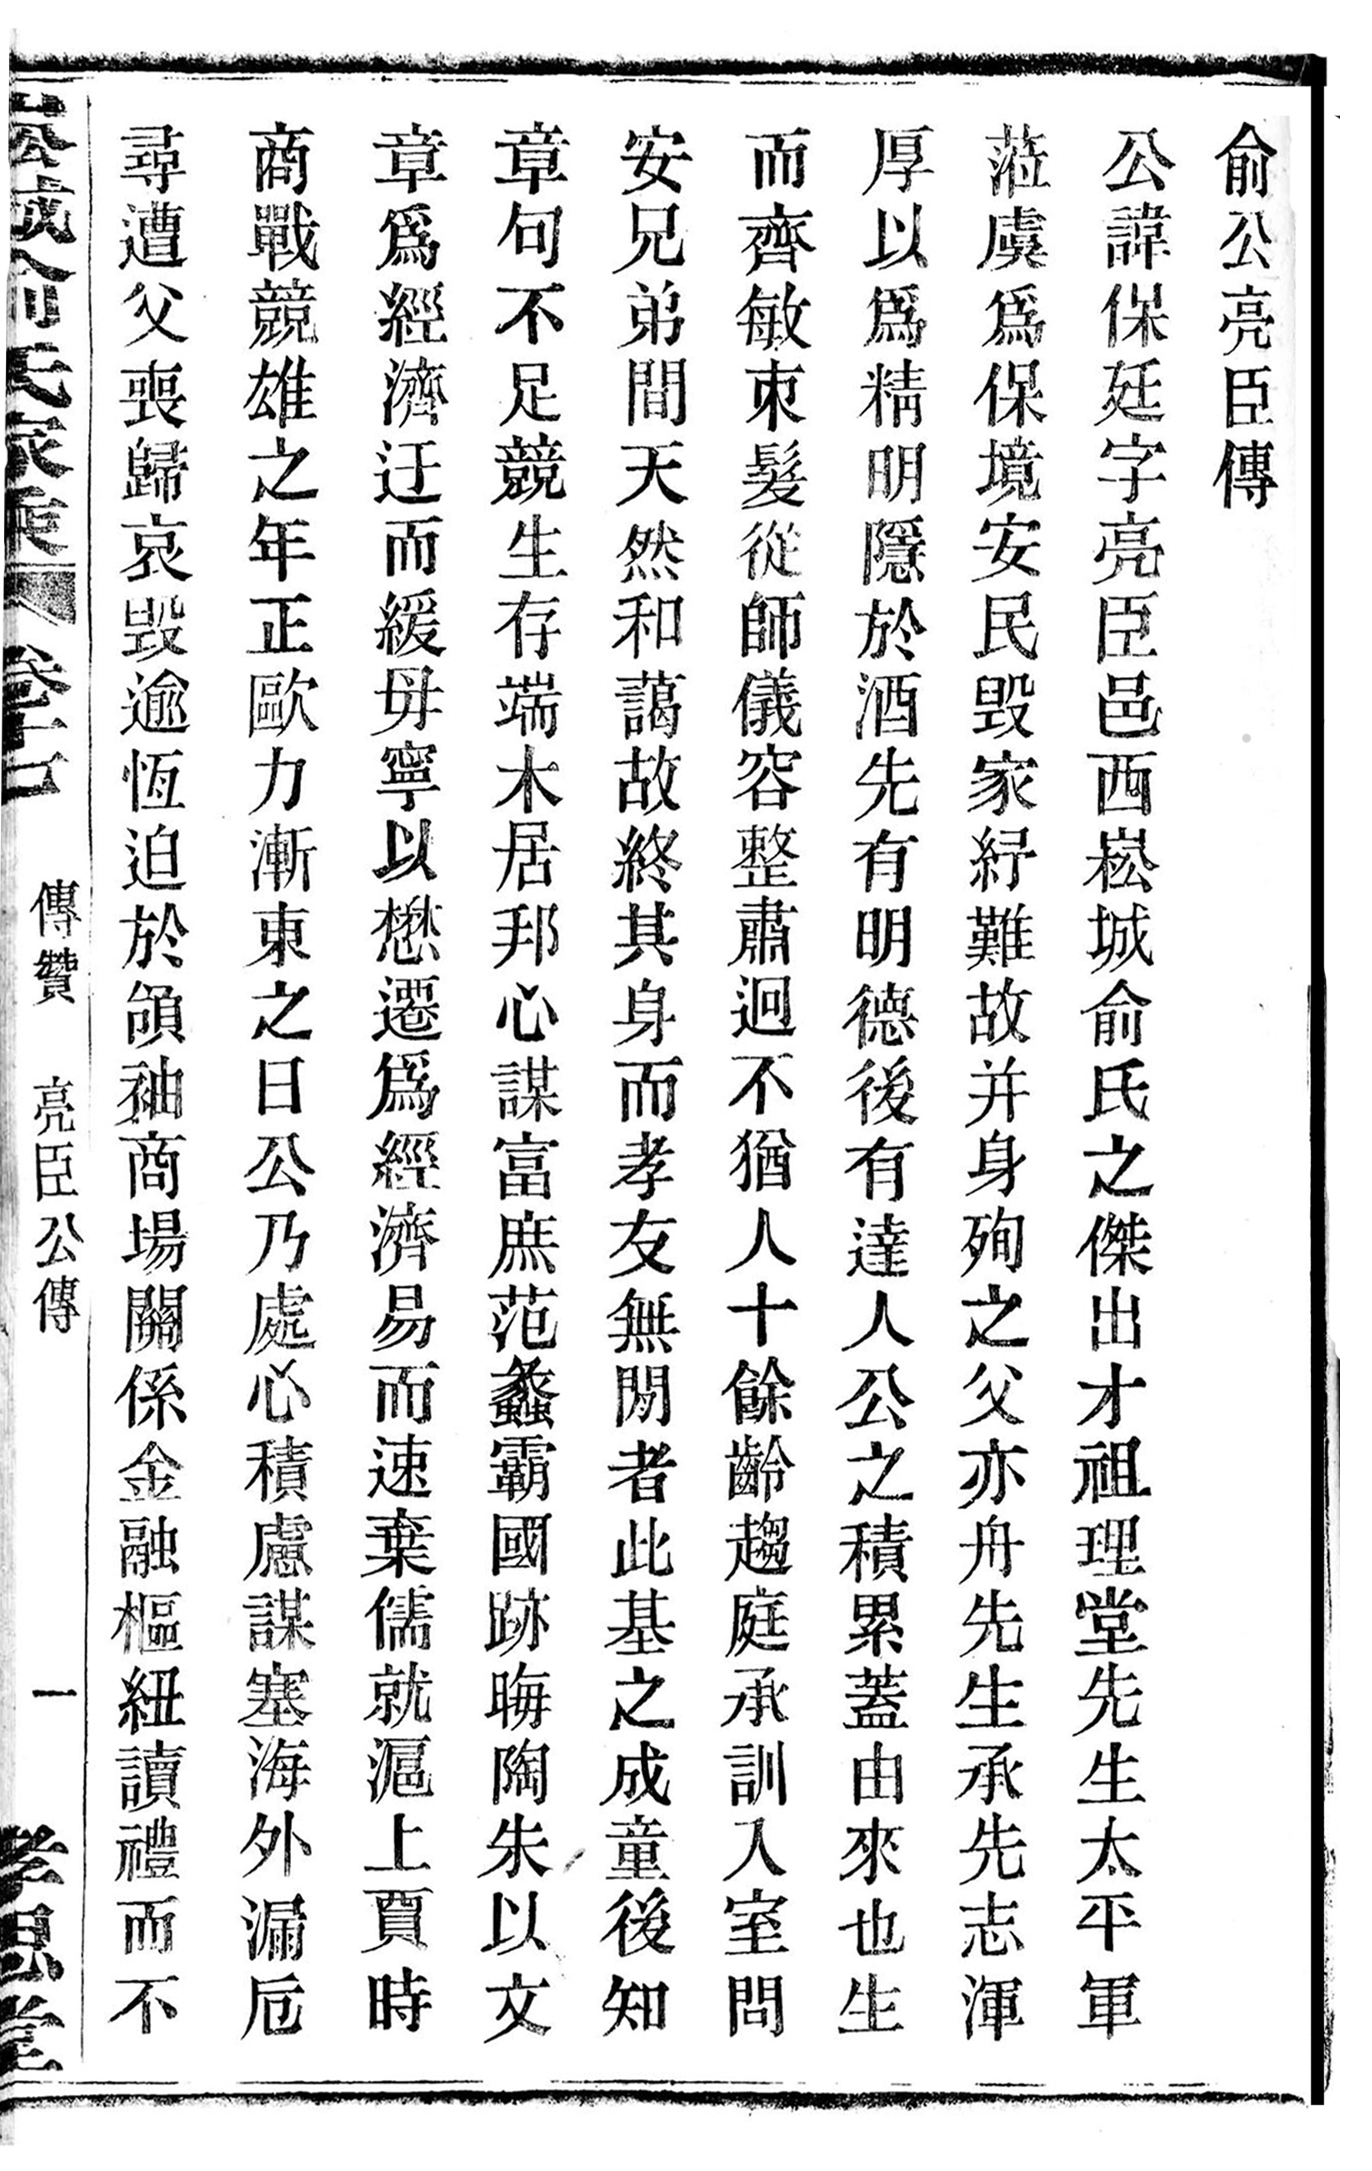 俞公亮臣傳
公諱保廷字亮臣邑西崧城俞氏之傑出才祖理堂先生太平軍
蒞虞爲保境安民毀家紓難故并身殉之父亦舟先生承先志渾
厚以爲精明隱於酒先有明德後有達人公之積累蓋由來也生
而齊敏朿髮從師儀容整肅迥不猶人十餘齡趨庭承訓入室問
安兄弟間天然和藹故終其身而孝友無閒者此基之成童後知
章句不足競生存端木居邦心謀富庶范蠡霸國跡晦陶朱以文
章爲經濟迂而緩毋寧以懋遷爲經濟易而速棄儒就滬上賈時
商戰競雄之年正歐力漸東之日公乃處心積慮謀塞海外漏卮
尋遭父喪歸哀毀逾恆迫於領袖商場關係金融樞紐讀禮而不
崧城俞氏家乘 卷十一 傳贊 亮臣公傳 一 孝思堂